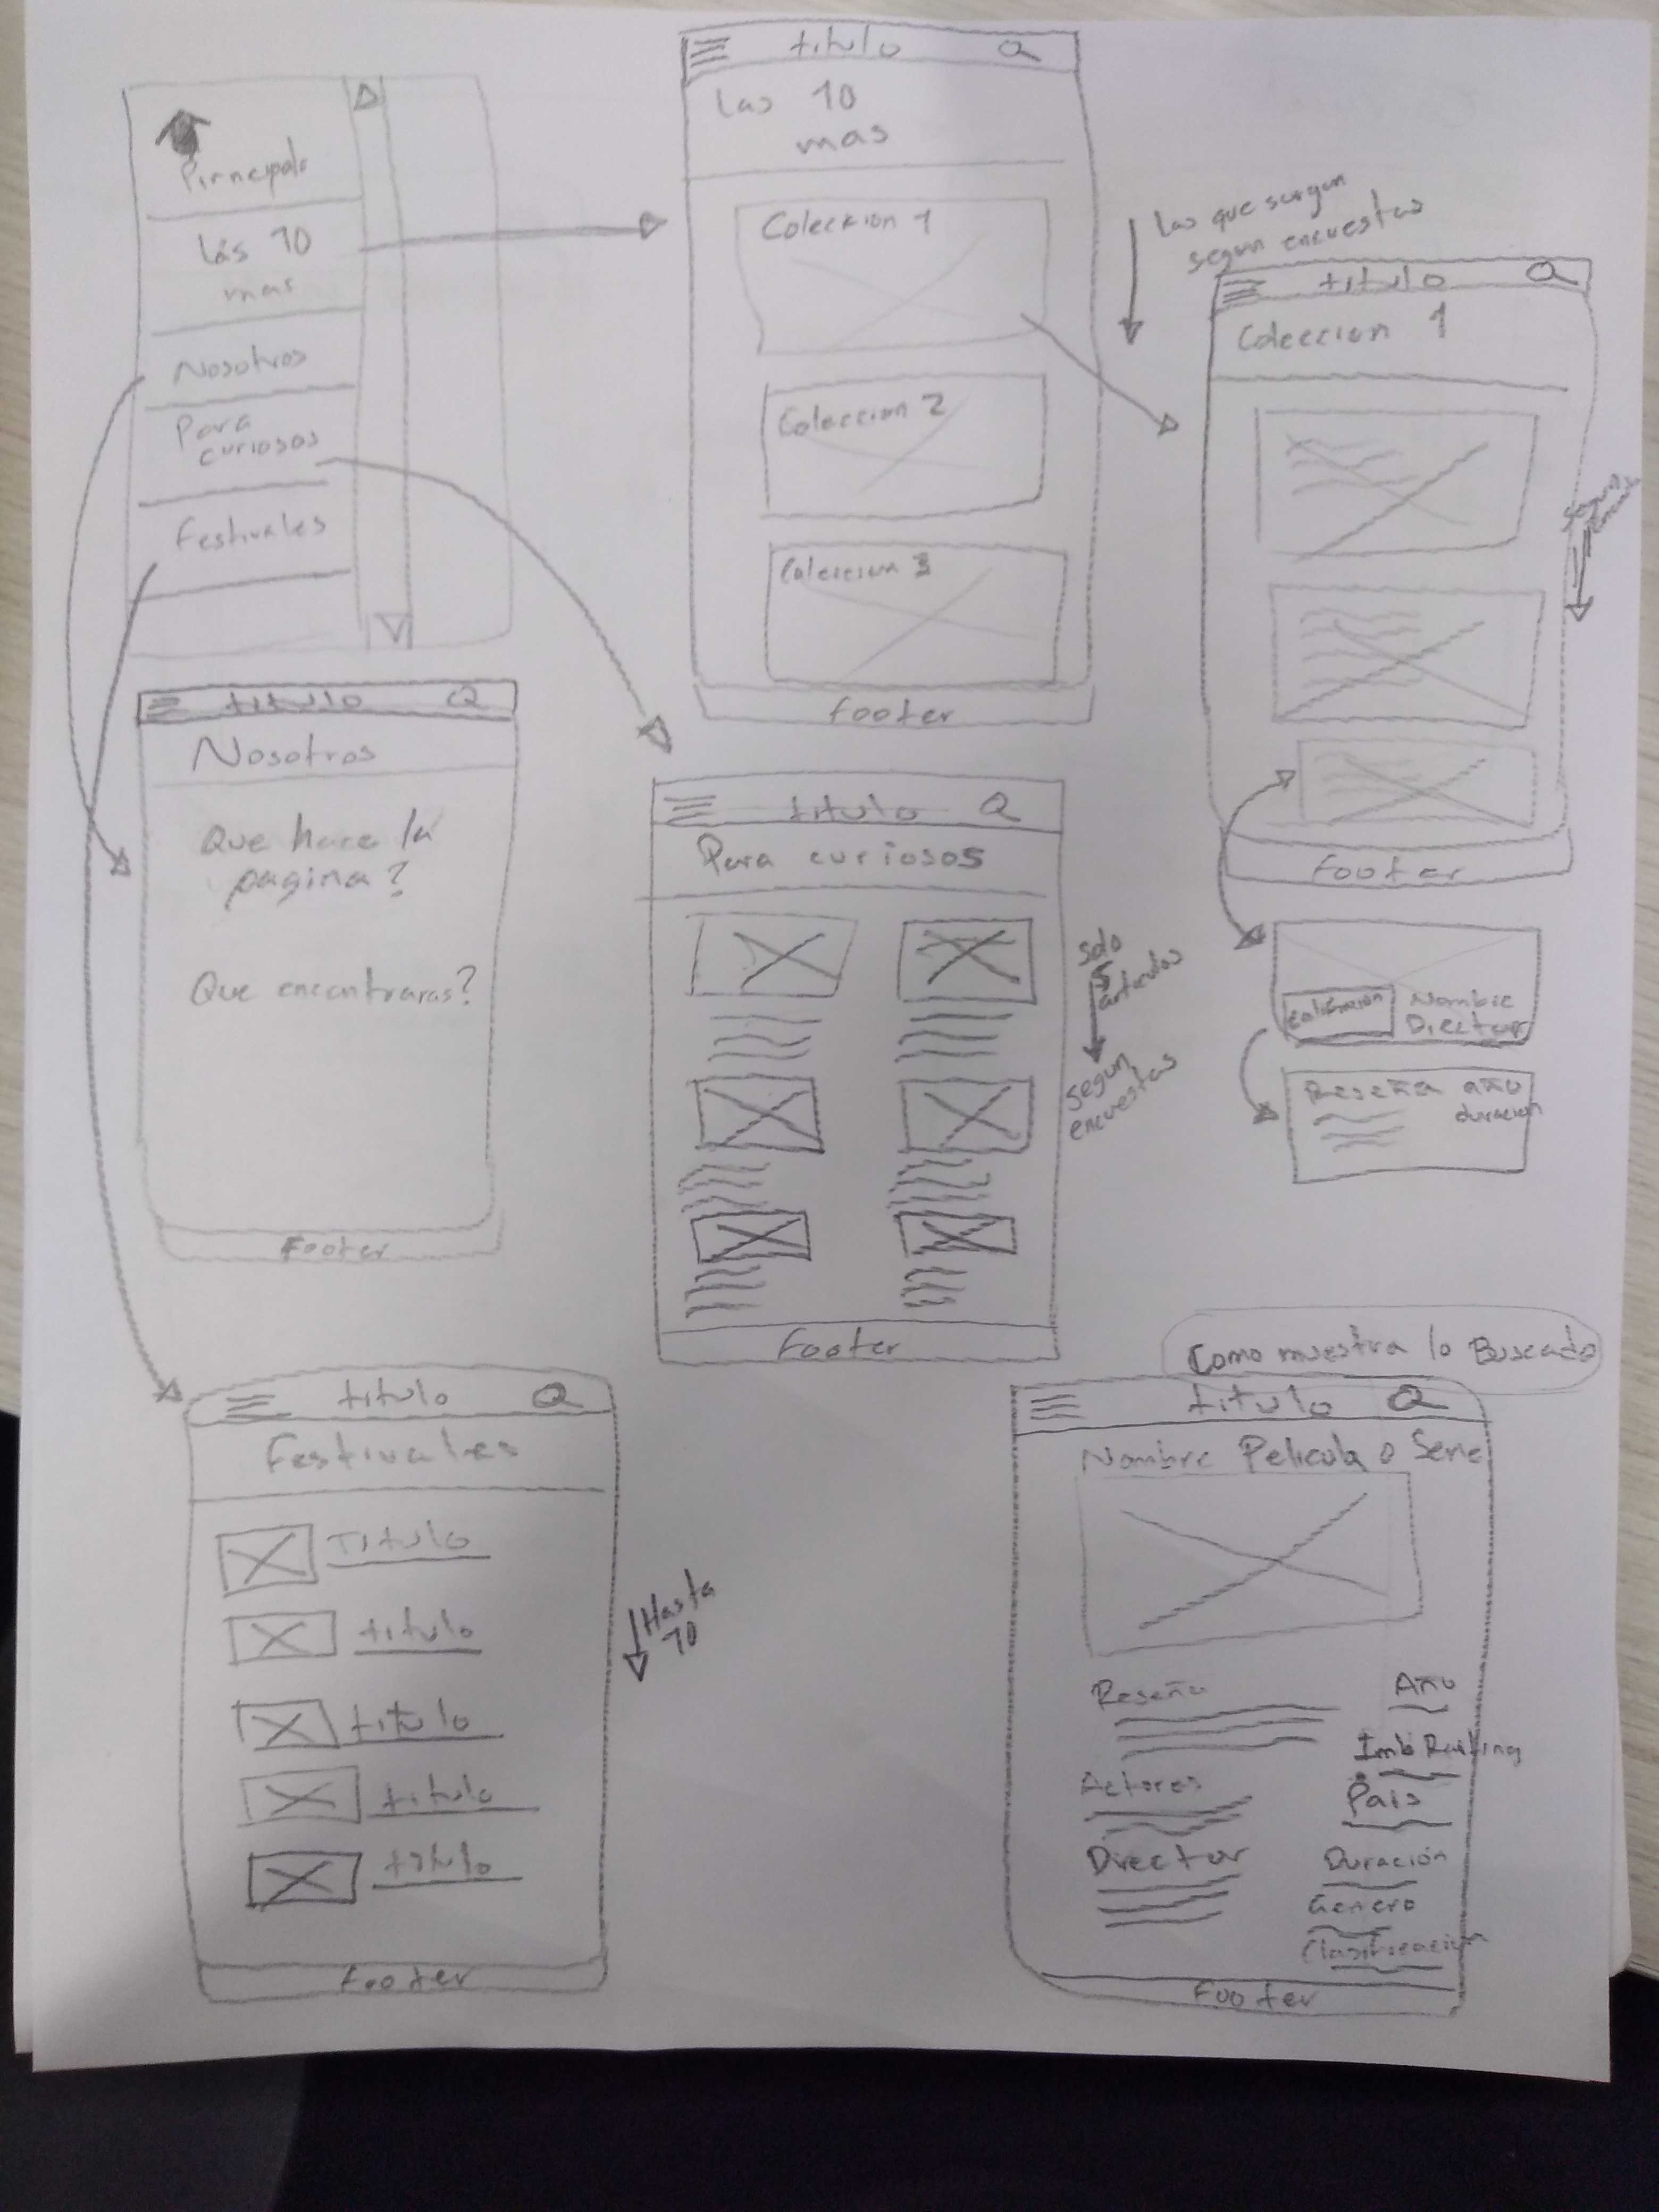 Pirncipal
las 10
mas
Nosotros
Para
curiosos
Festivales
titulo
las 10
mas
Coleccion 1
Coleccion 2
Coleccion 3
Footer
las que surgan
segun encuestas
titulo
Coleccion 1
Segun
Footer
Nombre
Director
Reseña año
duracion
titulo
Nosotros
Que hace la
pagina?
Que encontraras?
Footer
titulo
Para curiosos
Solo
5
articulos
segun
encuestas
Footer
titulo
Festivales
Titulo
titulo
titulo
titulo
titulo
Hasta
10
Footer
Como muestra lo Buscado
titulo
Nombre Pelicula o Serie
Reseña
Año
Imb Raiting
Actores
Pais
Director
Duración
Genero
Clasificacion
Footer